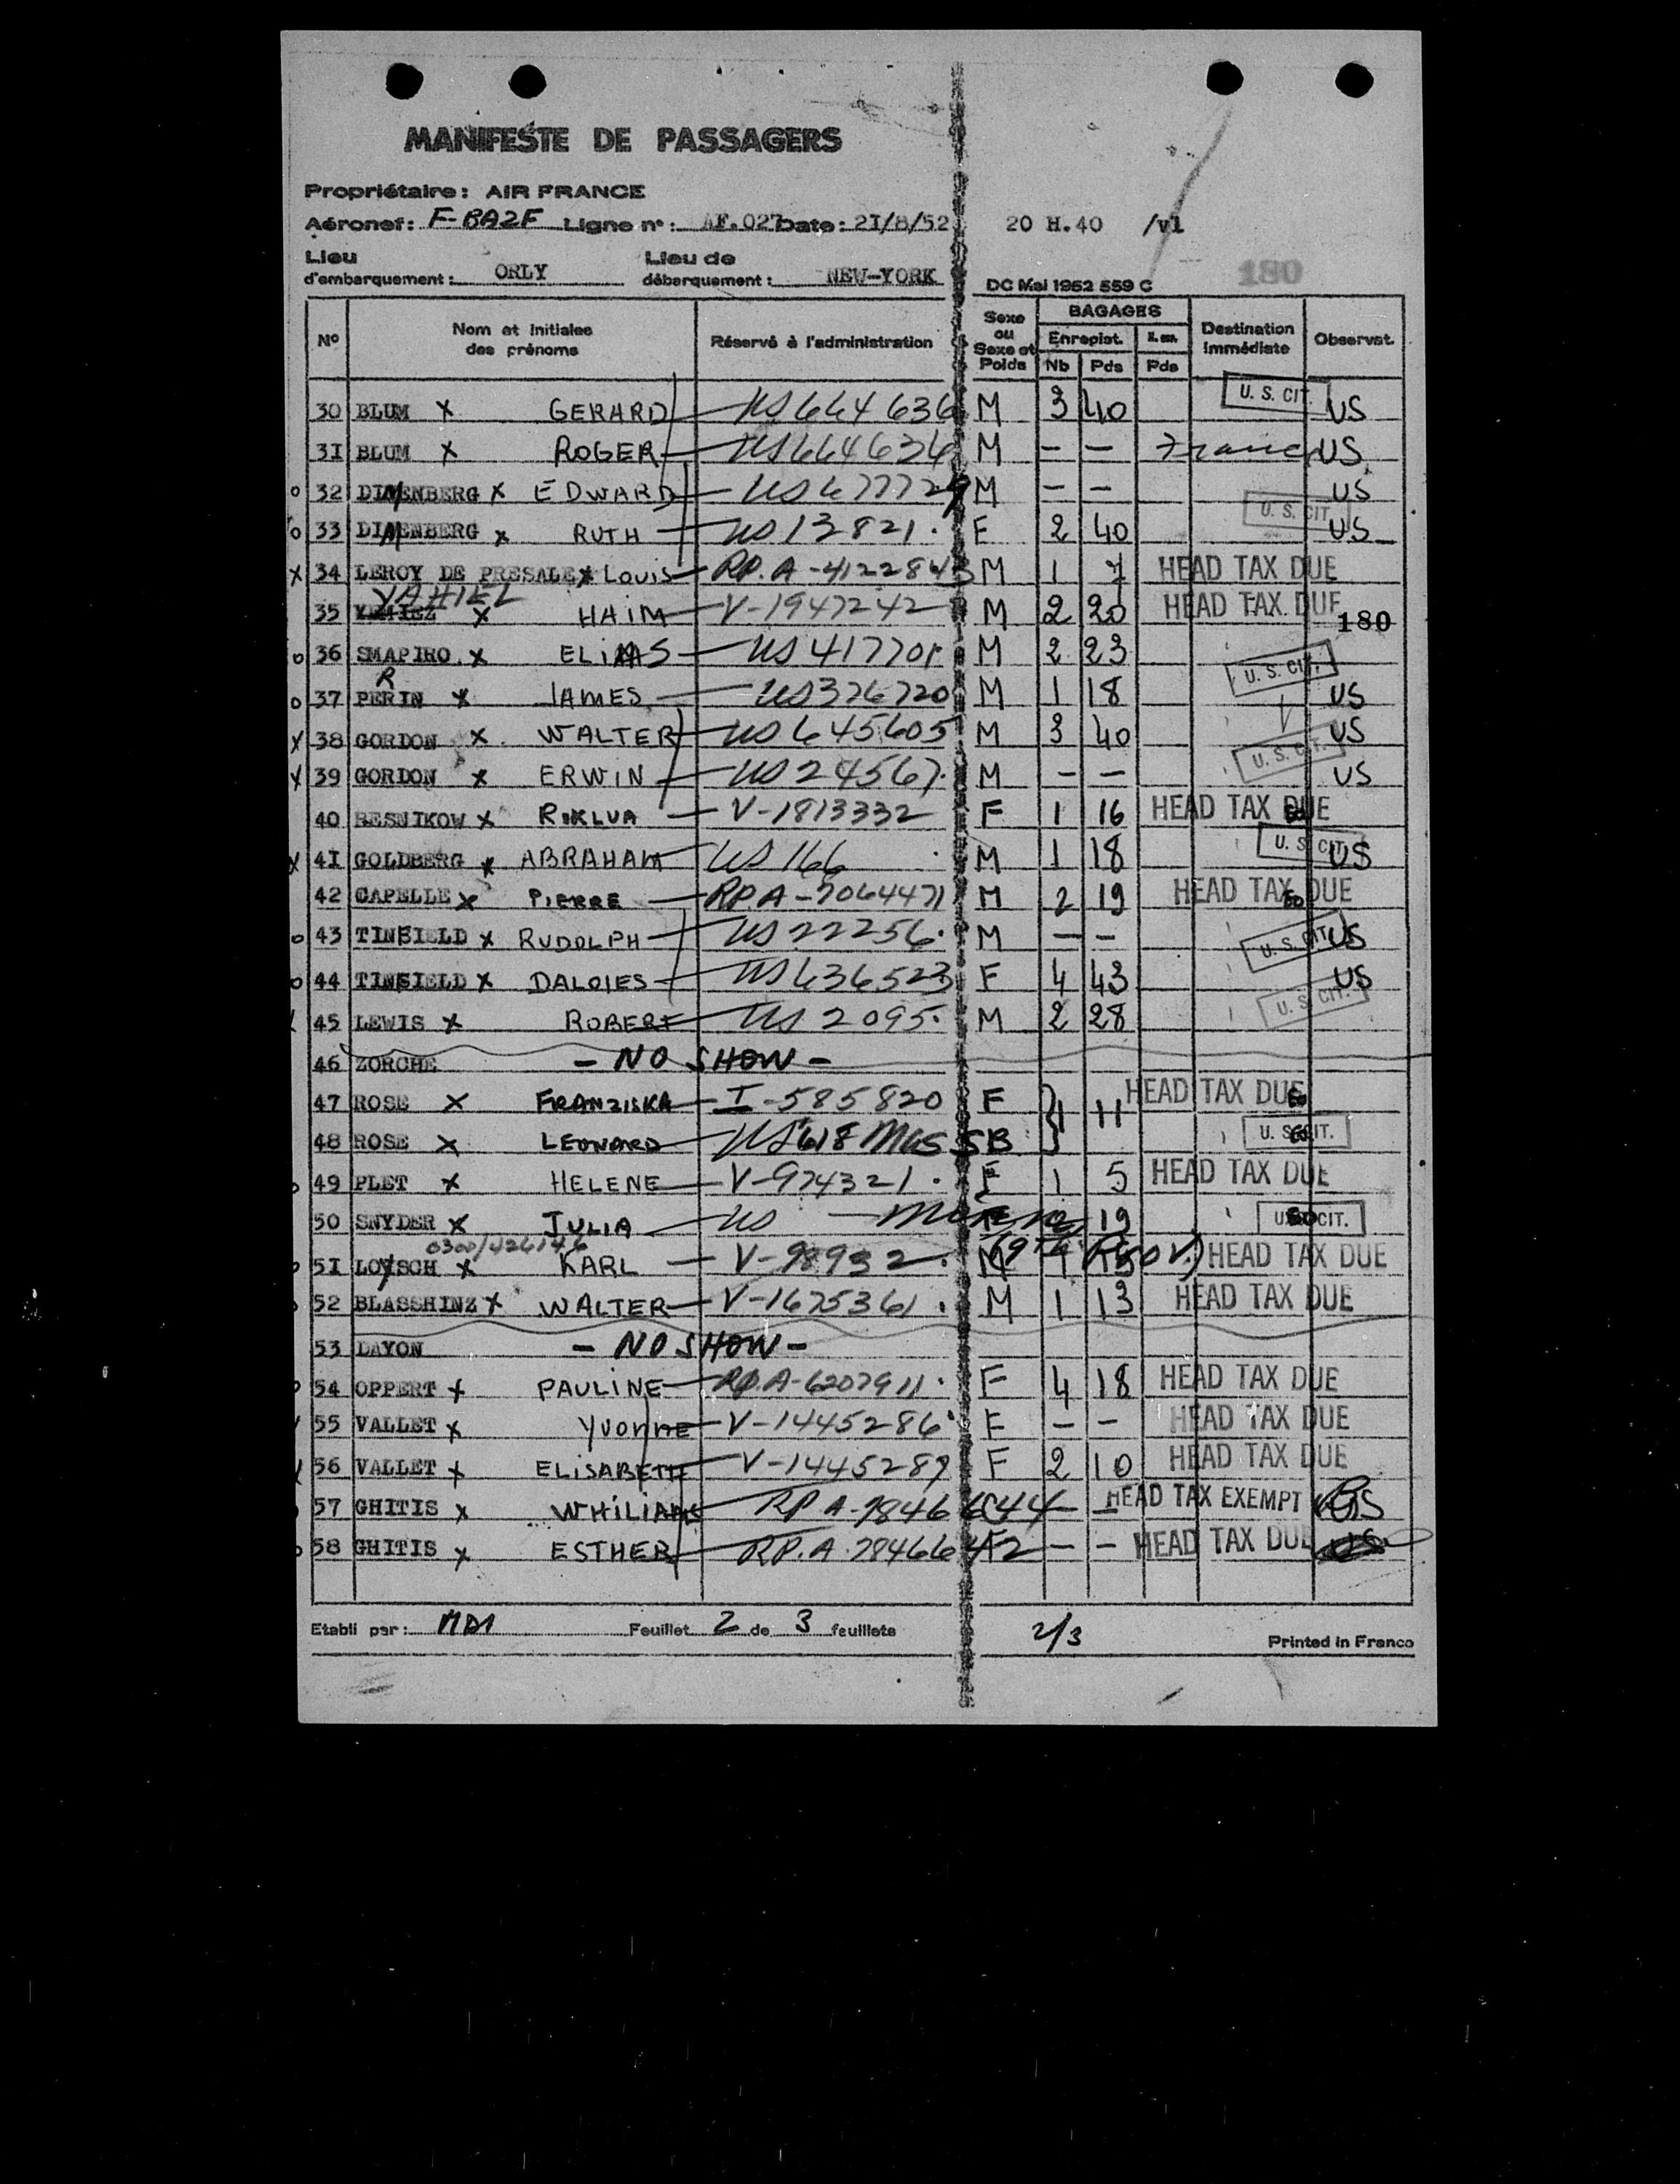 MANIFESTE DE PASSAGERS
Propriétaire: AIR FRANCE
Aéronef: F-BAZF Ligne n°: AF.027 Date: 21/8/52 20 H.40 /vl
Lieu d'embarquement: ORLY Lieu de débarquement: NEW-YORK
DC Mai 1952 559 C 180
N° Nom et Initiales des prénoms Réservé à l'administration Sexe ou Sexe et Poids BAGAGES Enregist. Nb Pds Pds Destination Immédiate Observat.
30 BLUM X GERARD US 664636 M 3 40 U. S. CIT. US
31 BLUM X ROGER M — — US
32 X EDWARD M — — US
33 X RUTH US 13821. F 2 40 U. S. CIT. US
X 34 LEROY DE PRESALE X LOUIS RP.A-4122843 M 1 7 HEAD TAX DUE
YAHIEL
35 X HAIM V-1947242 M 2 20 HEAD TAX DUE 180
36 SMAPIRO X ELIAS US 417701 M 2 23 U. S. CIT.
R
37 PERIN X JAMES US 326720 M 1 18 US
X 38 GORDON X WALTER US 645605 M 3 40 US
X 39 GORDON X ERWIN US 24567. M — — U. S. CIT. US
40 RESNIKOW X RIKLUA V-1813332 F 1 16 HEAD TAX DUE
X 41 GOLDBERG X ABRAHAM US 166 M 1 18 U. S. CIT. US
42 CAPELLE X PIERRE RP.A-7064471 M 2 19 HEAD TAX DUE
43 X RUDOLPH US 22256. M — — U. S. CIT. US
44 X DALOIES US 636523 F 4 43 US
45 LEWIS X ROBERT US 2095. M 2 28 U. S. CIT.
46 ZORCHE - NO SHOW -
47 ROSE X FRANZISKA I-585820 F 1 11 HEAD TAX DUE
48 ROSE X LEONARD US 618 B U. S. CIT.
49 PLET X HELENE V-974321. F 1 5 HEAD TAX DUE
50 SNYDER X JULIA US 19 U. S. CIT.
0300/426146
51 X KARL V-98932. M HEAD TAX DUE
52 BLASSHINZ X WALTER V-1675361. M 1 13 HEAD TAX DUE
53 DAYON - NO SHOW -
54 OPPERT X PAULINE RP.A-6207911. F 4 18 HEAD TAX DUE
55 VALLET X YVONNE V-1445286 F — — HEAD TAX DUE
56 VALLET X ELISABETTE V-1445287 F 2 10 HEAD TAX DUE
57 GHITIS X WHILIAMS RP A-7846644 — — HEAD TAX EXEMPT
58 GHITIS X ESTHER RP.A-7846642 — — HEAD TAX DUE
Etabli par: Feuillet 2 de 3 feuillets 2/3 Printed in France